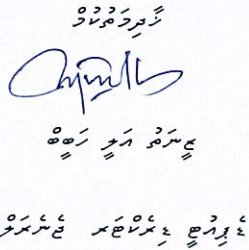 ޚާދިމަތުކުމް
ޒީނަތު އަލީ ޙަބީބް
ޑެޕިއުޓީ ޑިރެކްޓަރ ޖެނެރަލް